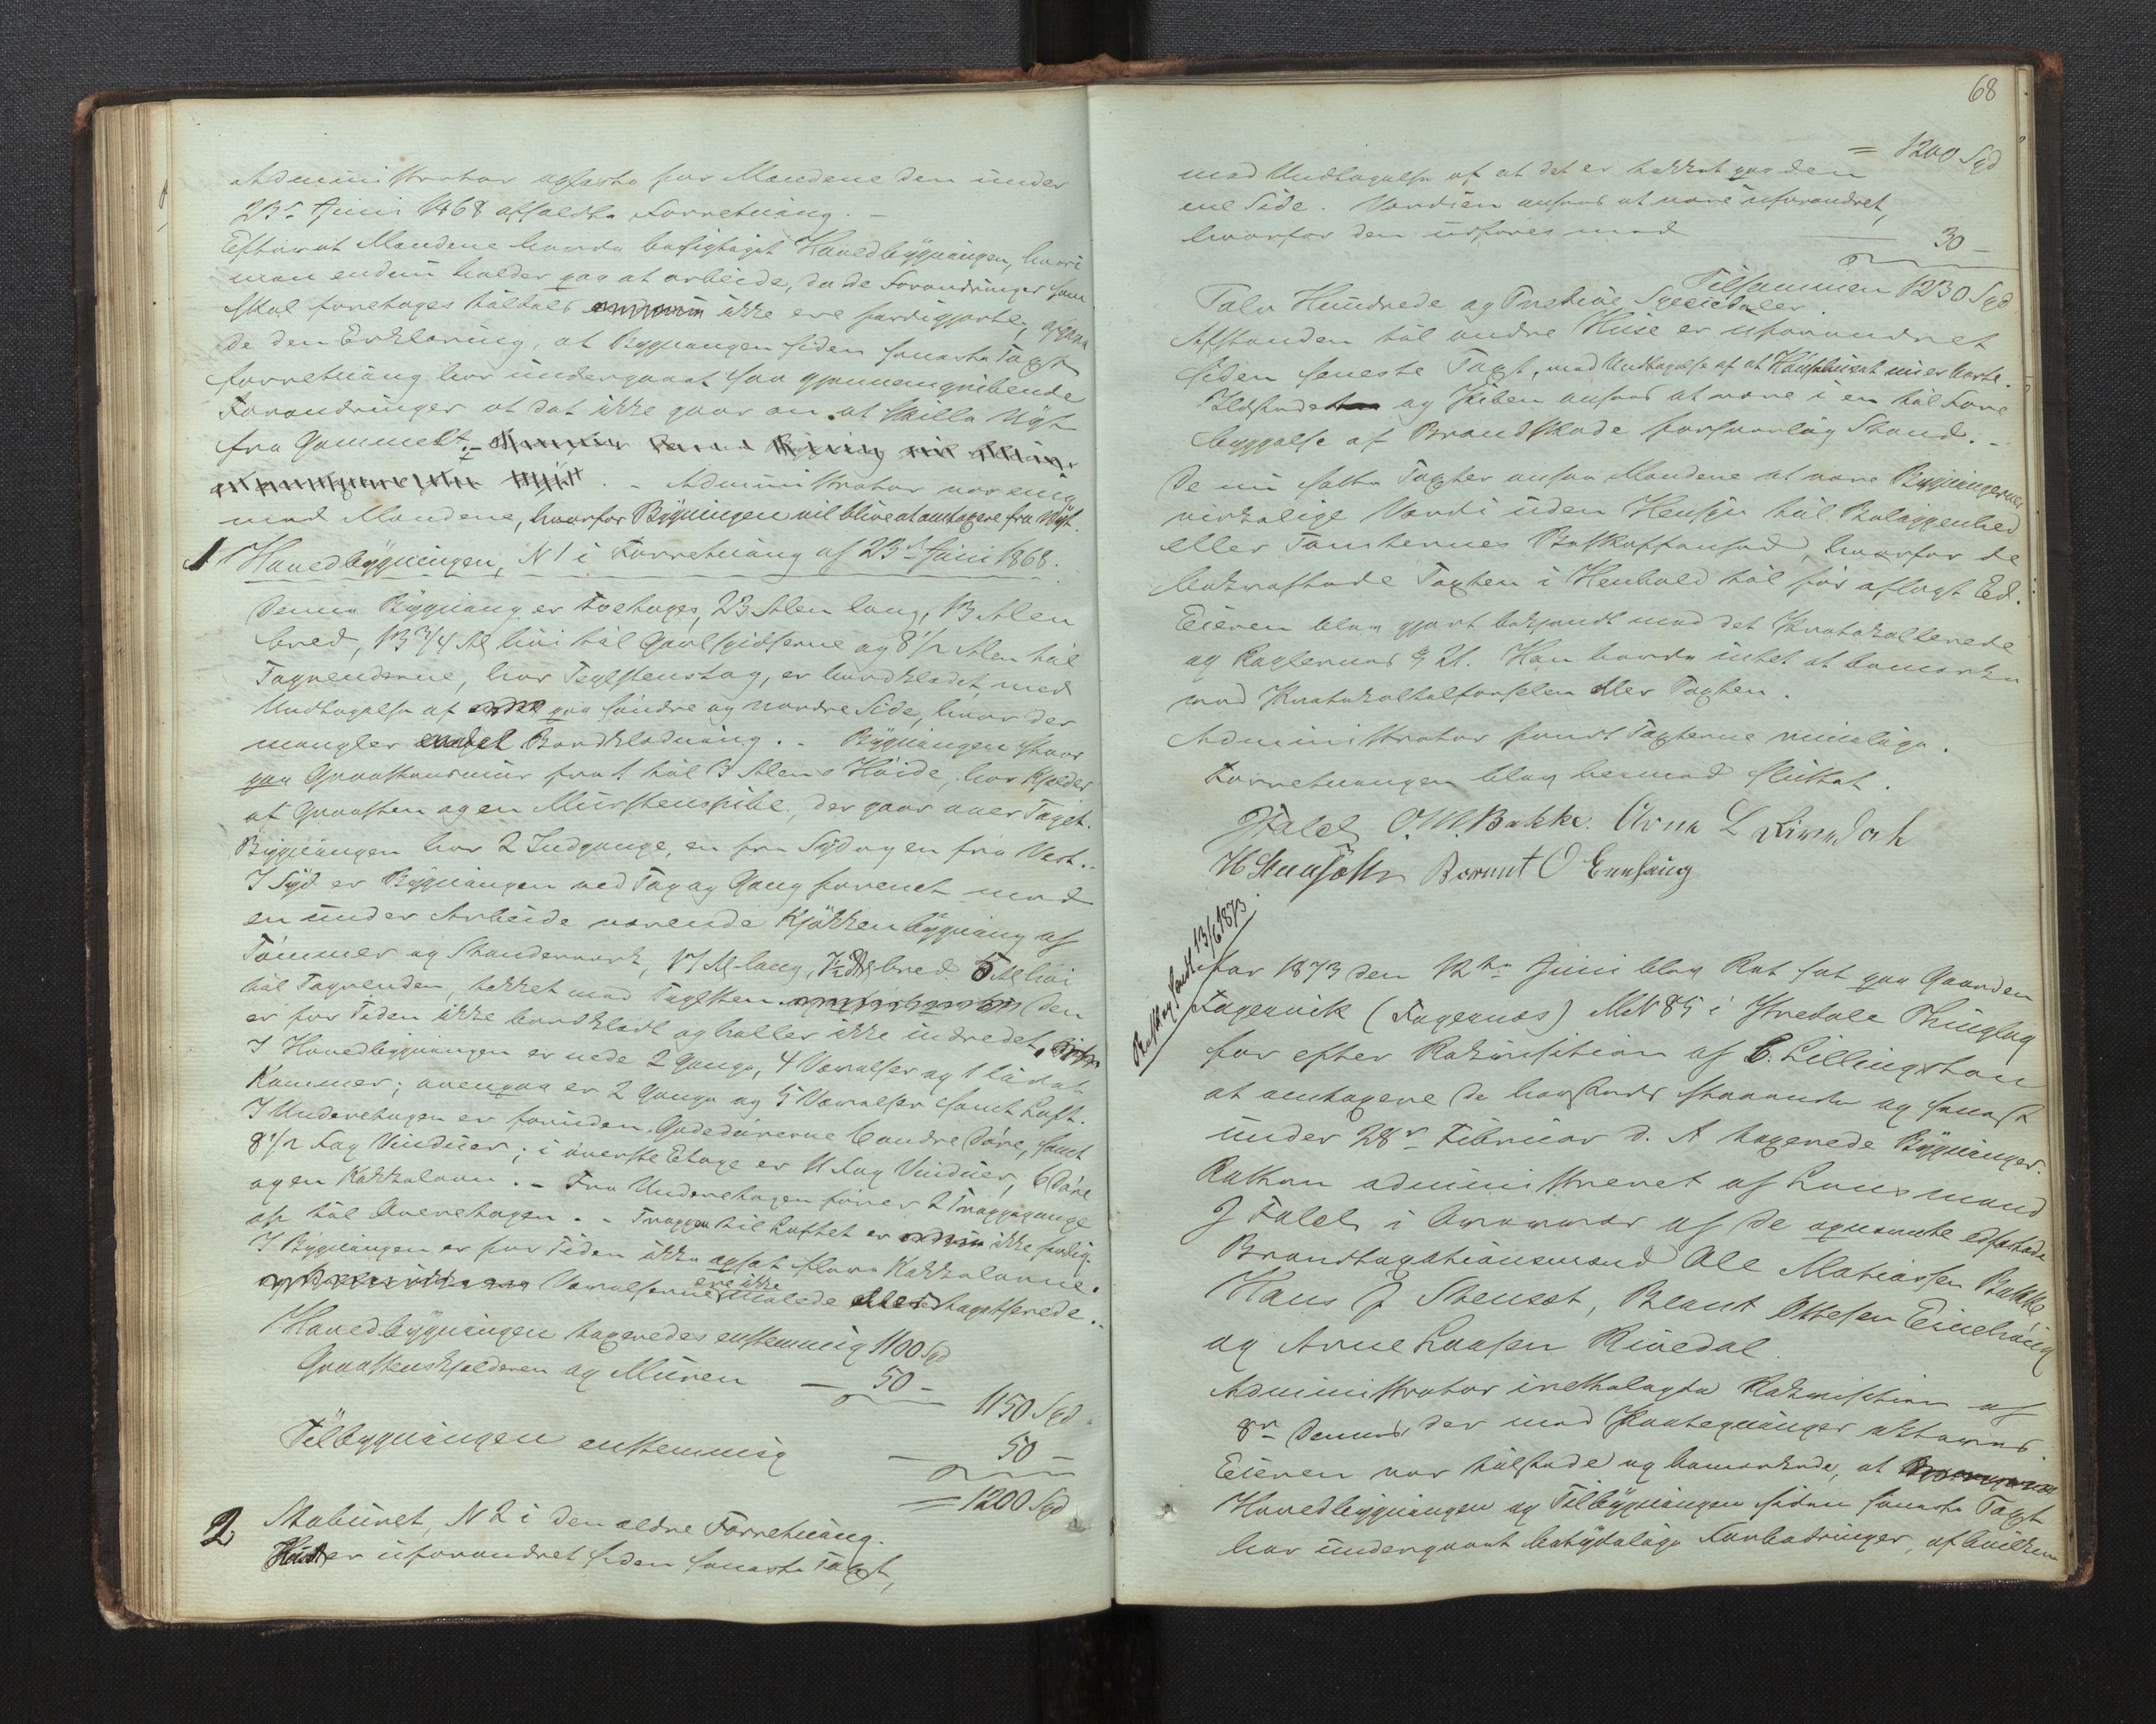 Administrator oplæste for Mændene den under
23de Juni 1868 afholdte Forretning. –
Efterat Mændene havde besigtiget Hovedbygningen, hvori
man endnu holder paa at arbeide, da de Forandringer som
skal foretages tildels ikke ere færdiggjorte, afgav
de den Erklæring, at Bygningen siden seneste Taxt
forretning har undergaaet saa gjennemgribende
Forandringer at det ikke gaar an at skille Nyt
fra Gammelt. –
– Administrator var enig
med Mændene, hvorfor Bygningen vil blive at omtaxere fra Nyt.
1 Hovedbygningen, N 1 i Forretning af 23de Juni 1868.
Denne Bygning er toetages, 23 Alen lang, 13 Alen
bred, 13 3/4 Al høi til Gavlspidserne og 8 1/2 Alen til
Tagrenderne, har Teglstenstag, er bordklædt, med
Undtagelse af paa søndre og nordre Side, hvor der
mangler endel Bordklædning. – Bygningen staar
paa Graastensmur fra 1 til 3 Alens Høide, har Kjelder
af Graasten og en Murstenspibe, der gaar over Taget.
Bygningen har 2 Indgange, en fra Syd og en fra Vest. –
I Syd er Bygningen ved Tag og Gang forenet med
en under Arbeide værende Kjøkkenbygning af
Tømmer og Standerværk, 17 Al lang, 7 1/2 Al bred 5 Al høi
til Tagrenden, tækket med Taglsten (den
er for Tiden ikke bordklædt og heller ikke indredet,
I Hovedbygningen er nede 2 Gange, 4 Værelser og 1 lidet
Kammer; ovenpaa er 2 Gange og 5 Værelser samt Loft.
I Underetagen er foruden Gadedørerne 6 andre Døre, samt
8 1/2 Fag Vinduer; i øverste Etage er 11 Fag Vinduer, 6 Døre
og en Kakkelovn. – Fra Underetagen fører 2 Trappegange
op til Overetagen. – Trappen til Loftet er ikke færdig.
I Bygningen er for Tiden ikke opsat flere Kakkelovne.
Værelserne ere ikke malede eller tapetserede. –
Hovedbygningen taxeredes enstemmig 1100 Spd
Graastenskjelderen og Muren – 50 –
1150 Spd.
Tilbygningen enstemmig – 50 –
= 1200 Spd
2 Staburet, N 2 i den ældre Forretning.
Huset er uforandret siden seneste Taxt,
68
= 1200 Spd
med Undtagelse af at det er tækket paa den
ene Side. Værdien ansaaes at være uforandret,
hvorfor den udføres med – 30 –
Tilsammen 1230 Spd
Tolv Hundrede og Tredive Speciedaler.
Afstanden til andre Huse er uforandret
siden seneste Taxt, med Undtagelse af at Hønsehuset nu er borte.
Ildstedet og Piben ansaaes at være i en til Fore
byggelse af Brandskade forsvarlig Stand. –
De nu satte Taxter ansaa Mændene at være Bygningernes
virkelige Værdi uden Hensyn til Beliggenhed
eller Tomternes Beskaffenhed, hvorfor de
bekræftede Taxten i Henhold til før aflagt Ed.
Eieren blev gjort bekjendt med det Protokollerede
og Reglernes § 21. Han havde intet at bemærke
mod Protokoltilførselen eller Taxten.
Administrator fandt Taxterne rimelige.
Forretningen blev hermed sluttet.
J Falch O. M. Bakke. Arne L Rivedal
H Stensæth Berent O Einehaug
13/6 1873
Aar 1873 den 12te Juni blev Ret sat paa Gaarden
Fagervik (Fagernæs) MN 85 i Yttredale Thinglag
for efter Rekvisition af C. Lillingston
at omtaxere de hersteds staaende og senest
under 28de Februar d. A taxerede Bygninger.
Retten administreret af Lensmand
J Falch i Overvær af de opnævnte edfæstede
Brandtaxationsmænd Ole Mathiassen Bakke
Hans J Stensæt, Berent Ottesen Einehaug
og Arne Larsen Rivedal.
Administrator irettelagde Rekvisition af
8de dennes, der med Paategninger aktoreres
Eieren var tilstede og bemærkede, at
Hovedbygningen og Tilbygningen siden seneste Taxt
har undergaaet betydelige Forbedringer, af hvilken